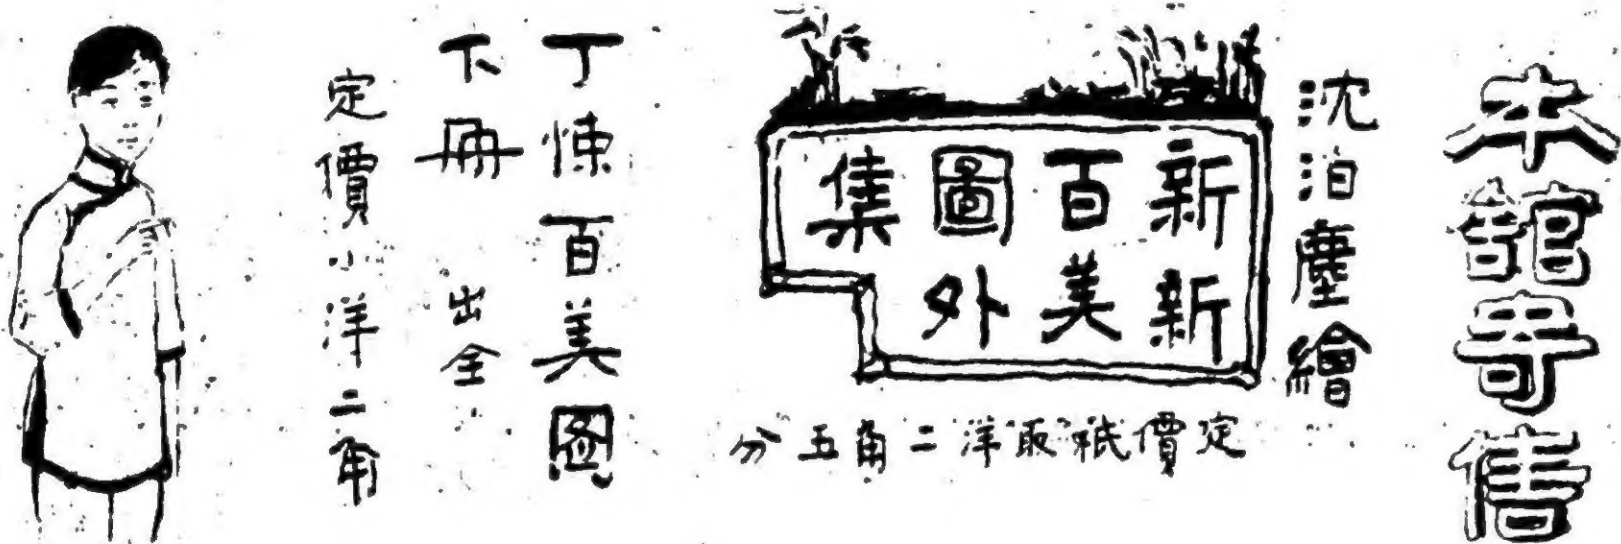 本館寄售
沈泊塵繪
新新百美圖外集
定價祇取洋二角五分
丁悚百美圖
下冊 出全
定價小洋二角